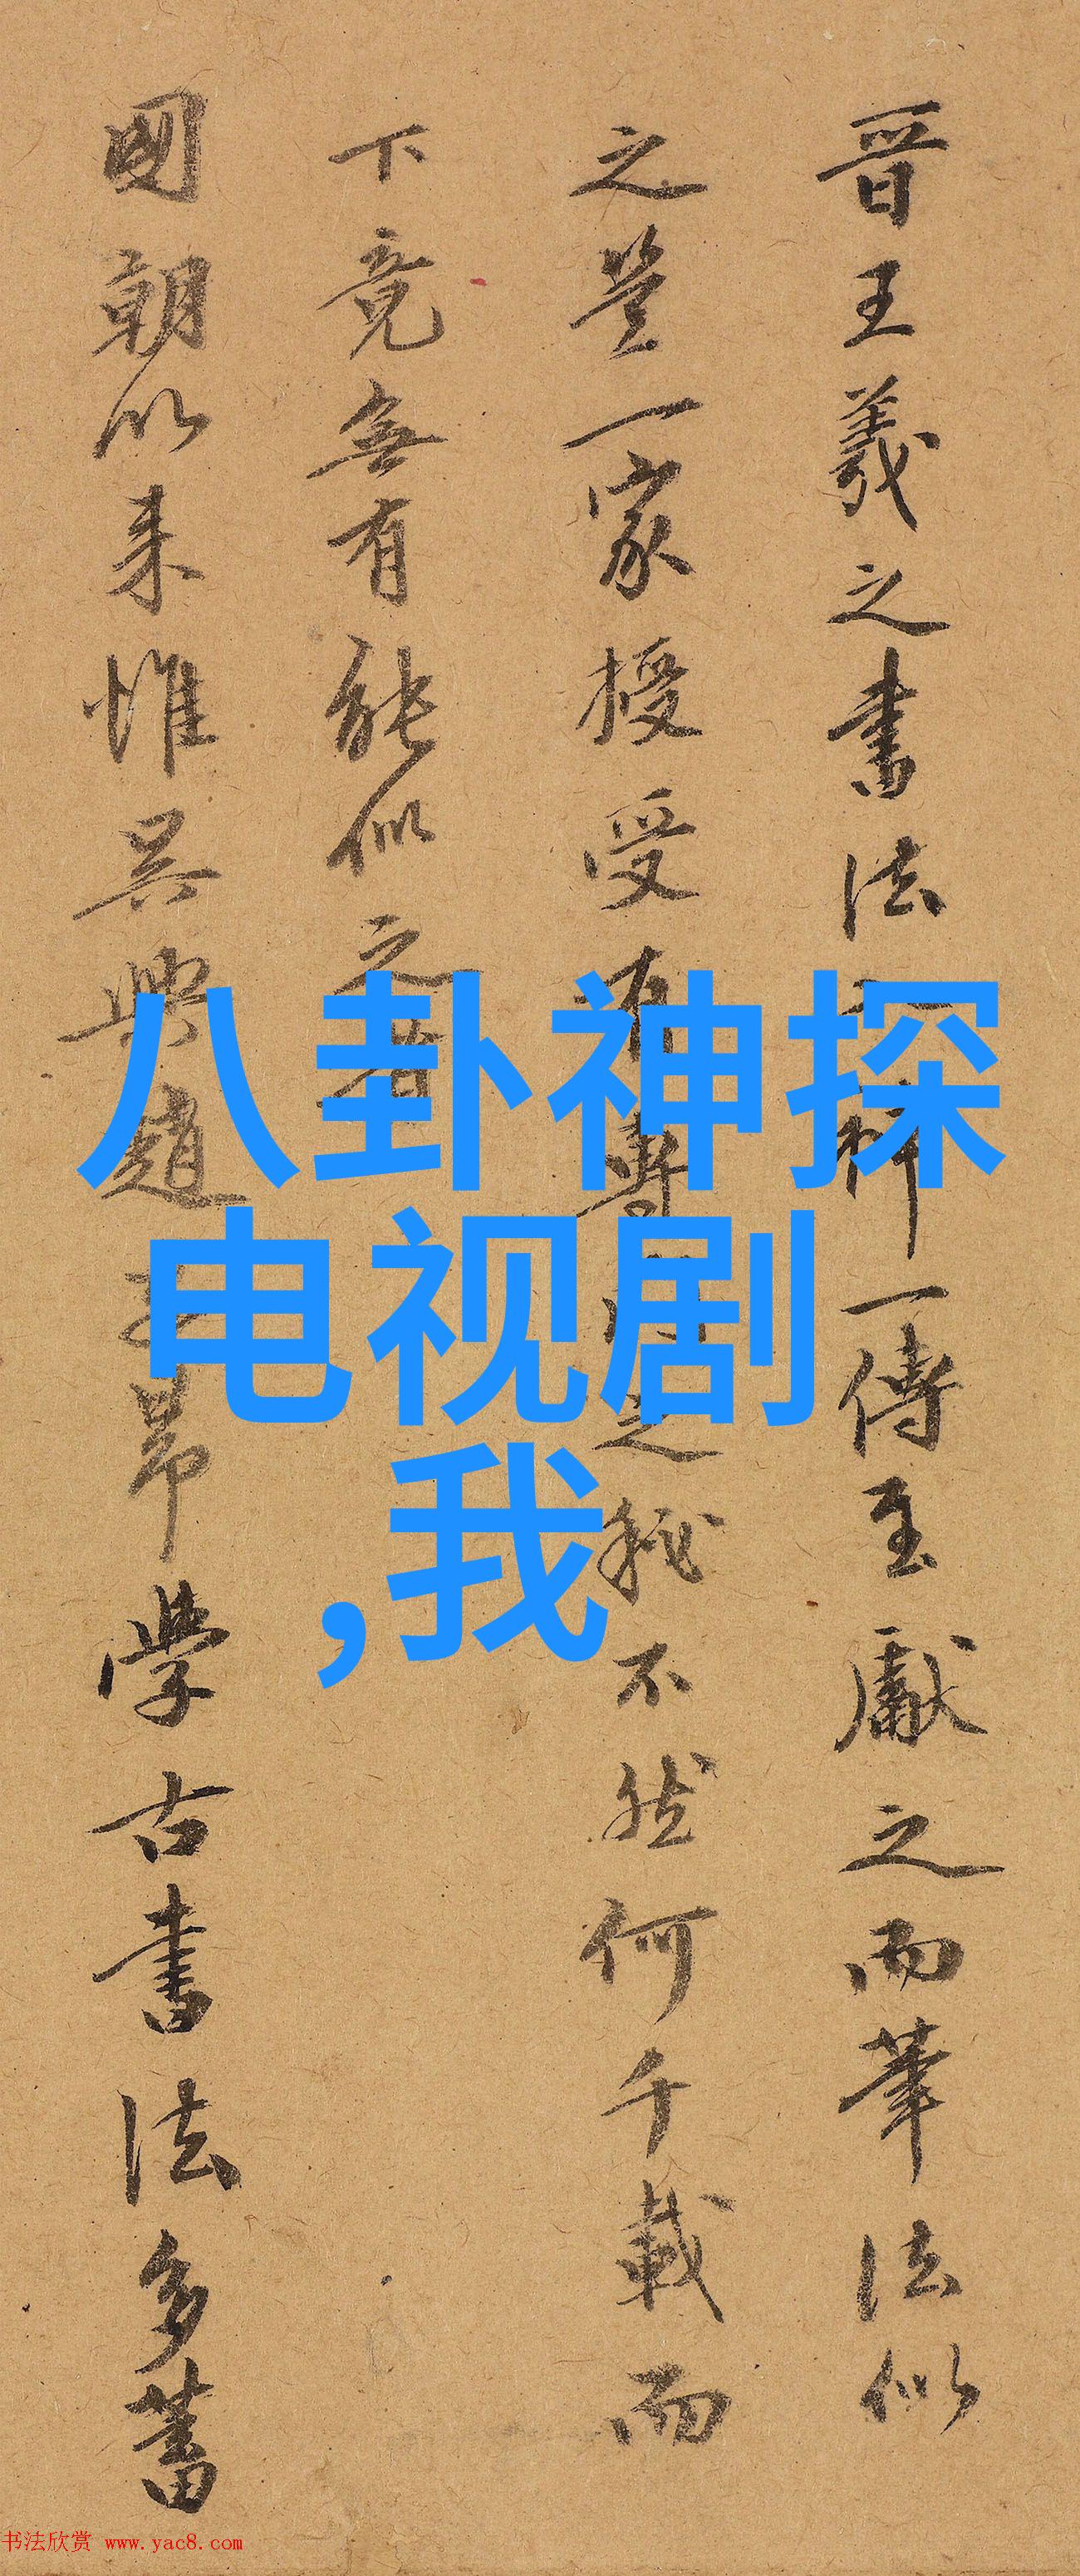 晋王羲之書法神一傳至獻之而筆法似
之豈一家授受有專之秘不然何千載而
下竟無有能似之者
國朝以来惟吴興趙子昂學古書法多蓄
八卦神探
电视剧
,我
书法欣赏 www.yac8.com